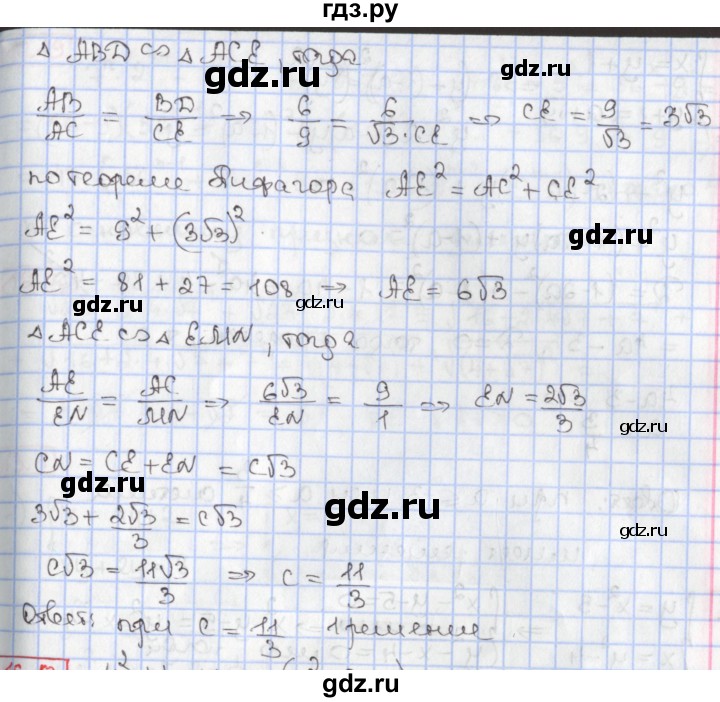 гдз.ру
△ ABD ∽ △ ACE, тогда
gdz.ru
AB/AC = BD/CE ⇒ 6/9 = 6/(√3·CE) ⇒ CE = 9/√3 = 3√3
gdz.ru
gdz.ru
по теореме Пифагора AE² = AC² + CE²
AE² = 9² + (3√3)²
gdz.ru
AE² = 81 + 27 = 108 ⇒ AE = 6√3
gdz.ru
gdz.ru
△ ACE ∽ △ EMN, тогда
AE/EN = AC/MN ⇒ 6√3/EN = 9/1 ⇒ EN = 2√3/3
gdz.ru
gdz.ru
CN = CE + EN = c√3
gdz.ru
gdz.ru
3√3 + 2√3/3 = c√3
gdz.ru
c√3 = 11√3/3 ⇒ c = 11/3
gdz.ru
Ответ: при c = 11/3 1 решение
gdz.ru
gdz.ru
gdz.ru